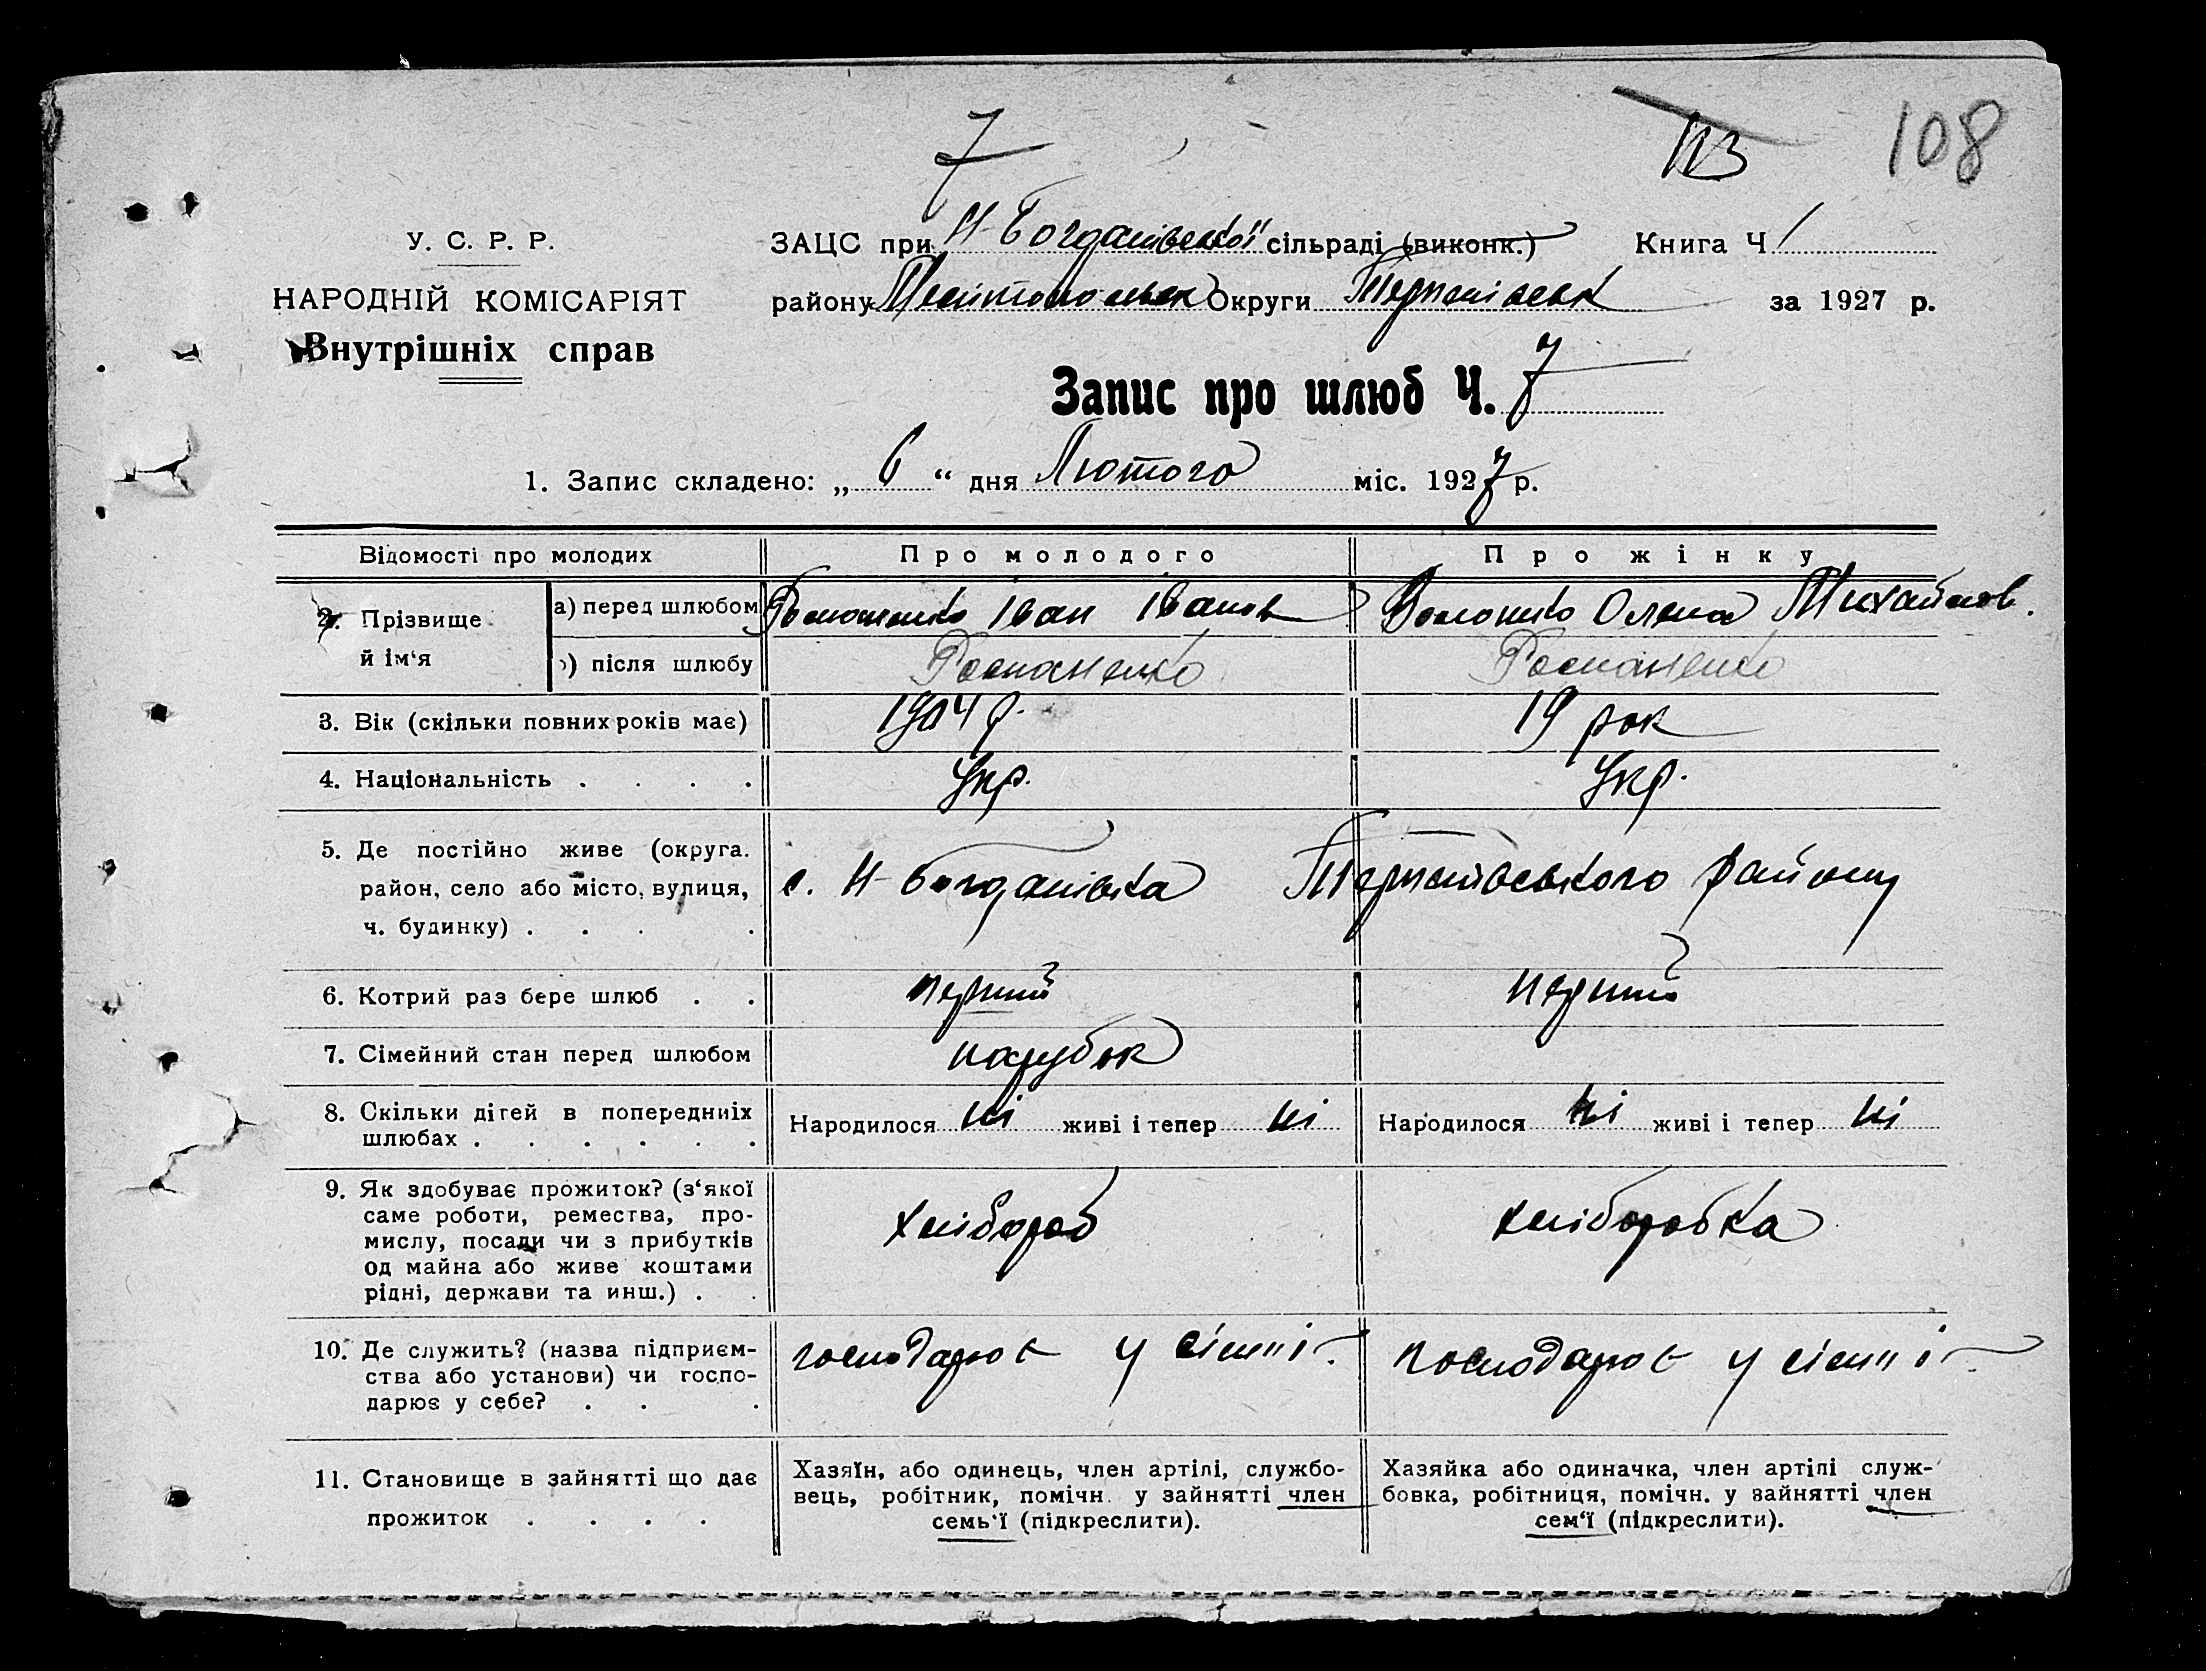 7
113
108
У. С. Р. Р.
НАРОДНІЙ КОМІСАРІЯТ
Внутрішніх справ
ЗАЦС при Н-Богданівської сільраді (виконк.) Книга Ч 1
району Мелітопольск Округи за 1927 р.
Запис про шлюб Ч. 7
1. Запис складено: „ 6 “ дня Лютого міс. 1927 р.
Відомості про молодих
Про молодого
Про жінку
2. Прізвище й ім‘я
а) перед шлюбом
Іван Іванов
Олена Михайлов.
б) після шлюбу
Романенко
Романенко
3. Вік (скільки повних років має)
1904 р.
19 рок
4. Національність . . . .
Укр.
Укр.
5. Де постійно живе (округа.
район, село або місто, вулиця,
ч. будинку) . . . .
с. Н-Богданівка району
6. Котрий раз бере шлюб . .
перший
перший
7. Сімейний стан перед шлюбом
парубок
8. Скільки дітей в попередніх
шлюбах . . . . . .
Народилося ні живі і тепер ні
Народилося ні живі і тепер ні
9. Як здобуває прожиток? (з‘якої
саме роботи, ремества, про-
мислу, посади чи з прибутків
од майна або живе коштами
рідні, держави та инш.) . .
хлібороб
хліборобка
10. Де служить? (назва підприєм-
ства або установи) чи госпо-
дарює у себе? . . .
господарює у сім'ї
господарює у сім'ї
11. Становище в зайнятті що дає
прожиток . . . .
Хазяїн, або одинець, член артілі, службо-
вець, робітник, помічн. у зайнятті член
семь‘ї (підкреслити).
Хазяйка або одиначка, член артілі служ-
бовка, робітниця, помічн. у зайнятті член
сем‘ї (підкреслити).